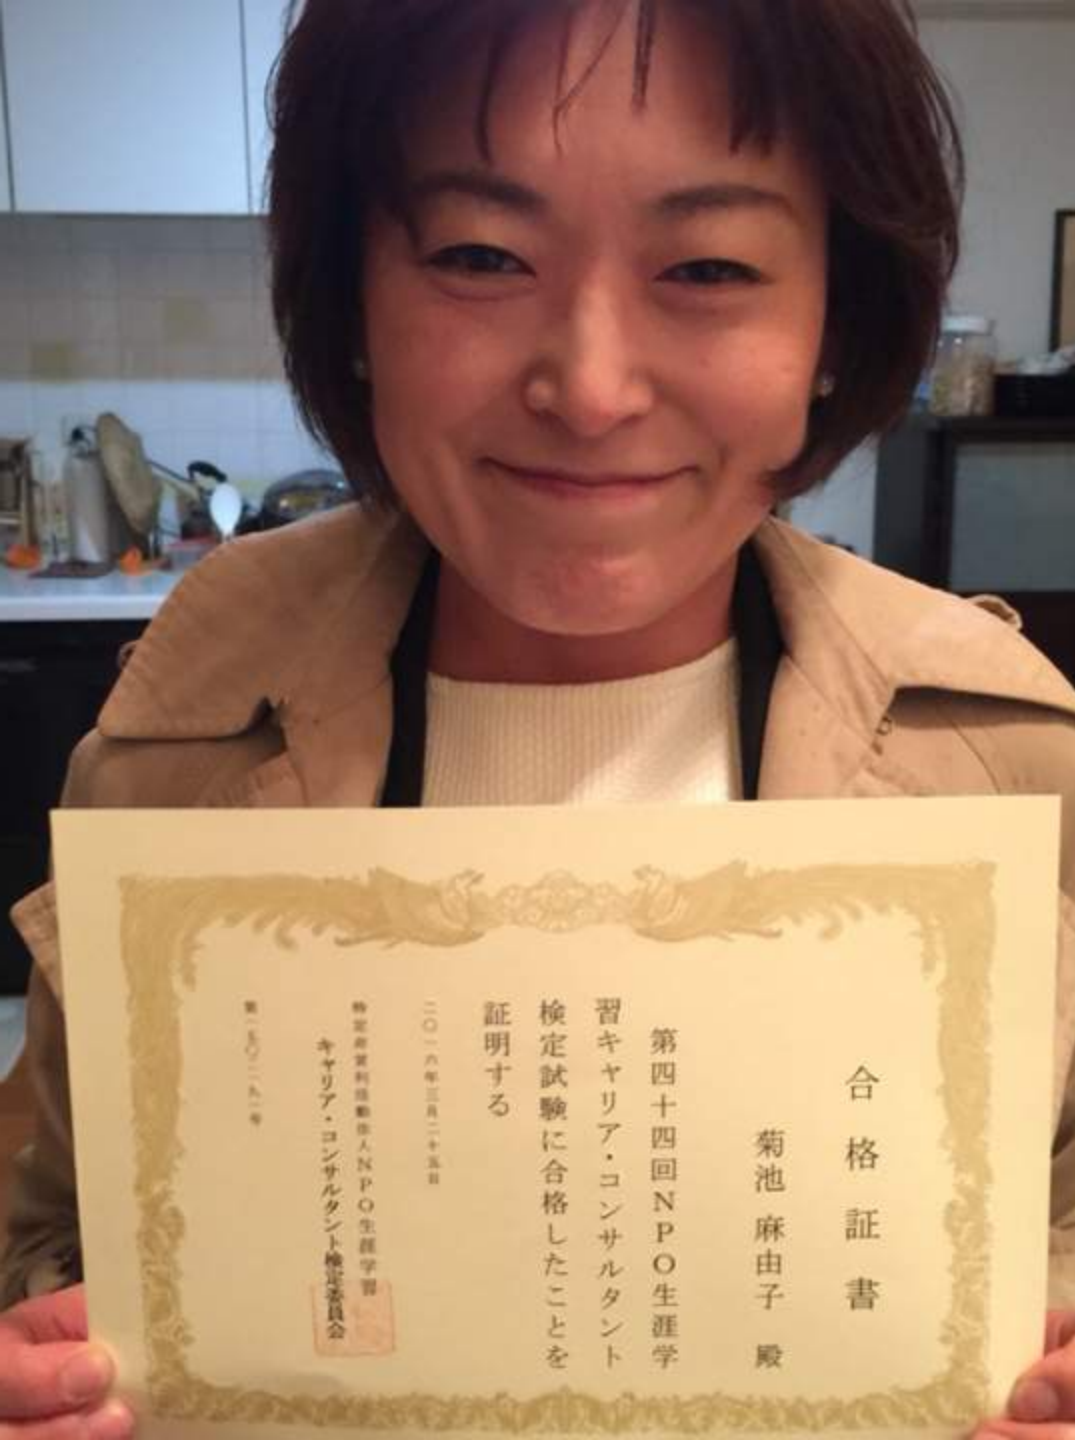 合格証書
菊池 麻由子 殿
第四十四回NPO生涯学
習キャリア・コンサルタント
検定試験に合格したことを
証明する
二〇一六年三月二十五日
特定非営利活動法人NPO生涯学習
キャリア・コンサルタント検定委員会